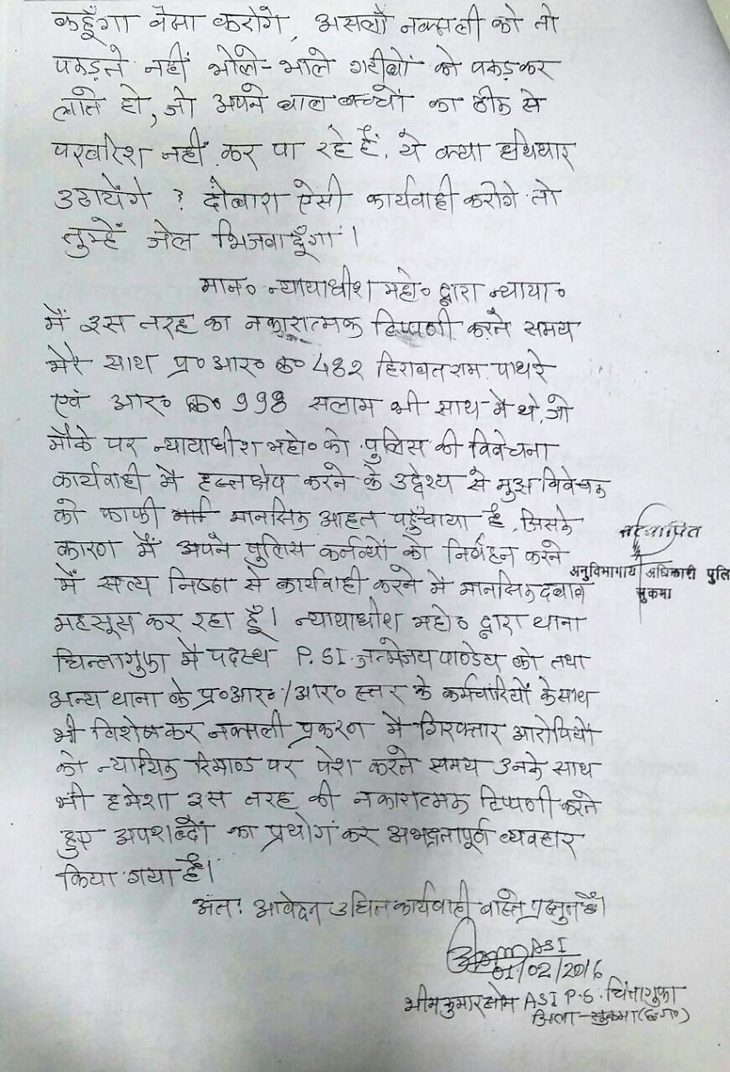 कहूँगा वैसा करोगे, असली नक्सली को तो
पकड़ते नहीं भोले-भाले गरीबों को पकड़कर
लाते हो, जो अपने बाल बच्चों का ठीक से
परवरिश नहीं कर पा रहे हैं, ये क्या हथियार
उठायेंगे ? दोबारा ऐसी कार्यवाही करोगे तो
तुम्हें जेल भिजवा दूँगा।
मान० न्यायाधीश महो० द्वारा न्याया०
में इस तरह का नकारात्मक टिप्पणी करते समय
मेरे साथ प्र०आर० क्र० 482 हिरावतराम पाथरे
एवं आर० क्र० 998 सलाम भी साथ में थे, जो
मौके पर न्यायाधीश महो० को पुलिस की विवेचना
कार्यवाही में हस्तक्षेप करने के उद्देश्य से मुझ विवेचक
को काफी मानसिक आहत पहुँचाया है, जिसके
कारण मैं अपने पुलिस कर्तव्यों को निर्वहन करने
में सत्य निष्ठा से कार्यवाही करने में मानसिक दबाव
महसूस कर रहा हूँ। न्यायाधीश महो० द्वारा थाना
चिन्तागुफा में पदस्थ P.SI. जन्मेजय पाण्डेय को तथा
अन्य थाना के प्र०आर०/आर० स्तर के कर्मचारियों के साथ
भी विशेषकर नक्सली प्रकरण में गिरफ्तार आरोपियों
को न्यायिक रिमाण्ड पर पेश करते समय उनके साथ
भी हमेशा इस तरह की नकारात्मक टिप्पणी करते
हुए अपशब्दों का प्रयोग कर अभद्रतापूर्ण व्यवहार
किया गया है।
अंतः आवेदन उचित कार्यवाही वास्ते प्रस्तुत है।
सत्यापित
अनुविभागीय अधिकारी पुलि
सुकमा
ASI
01/02/2016
भीमकुमार सोम ASI P.S. चिंतागुफा
जिला-सुकमा (छ०ग०)